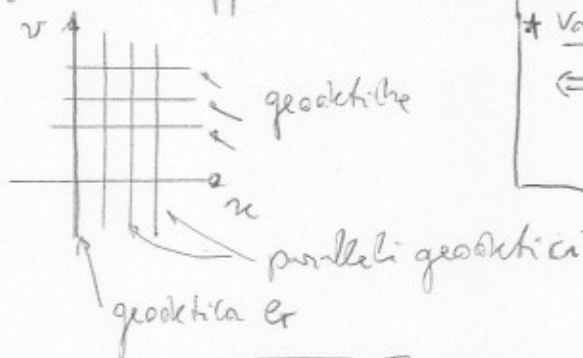 v
* Va
geodetiche
⇐
u
paralleli geodetici
geodetica